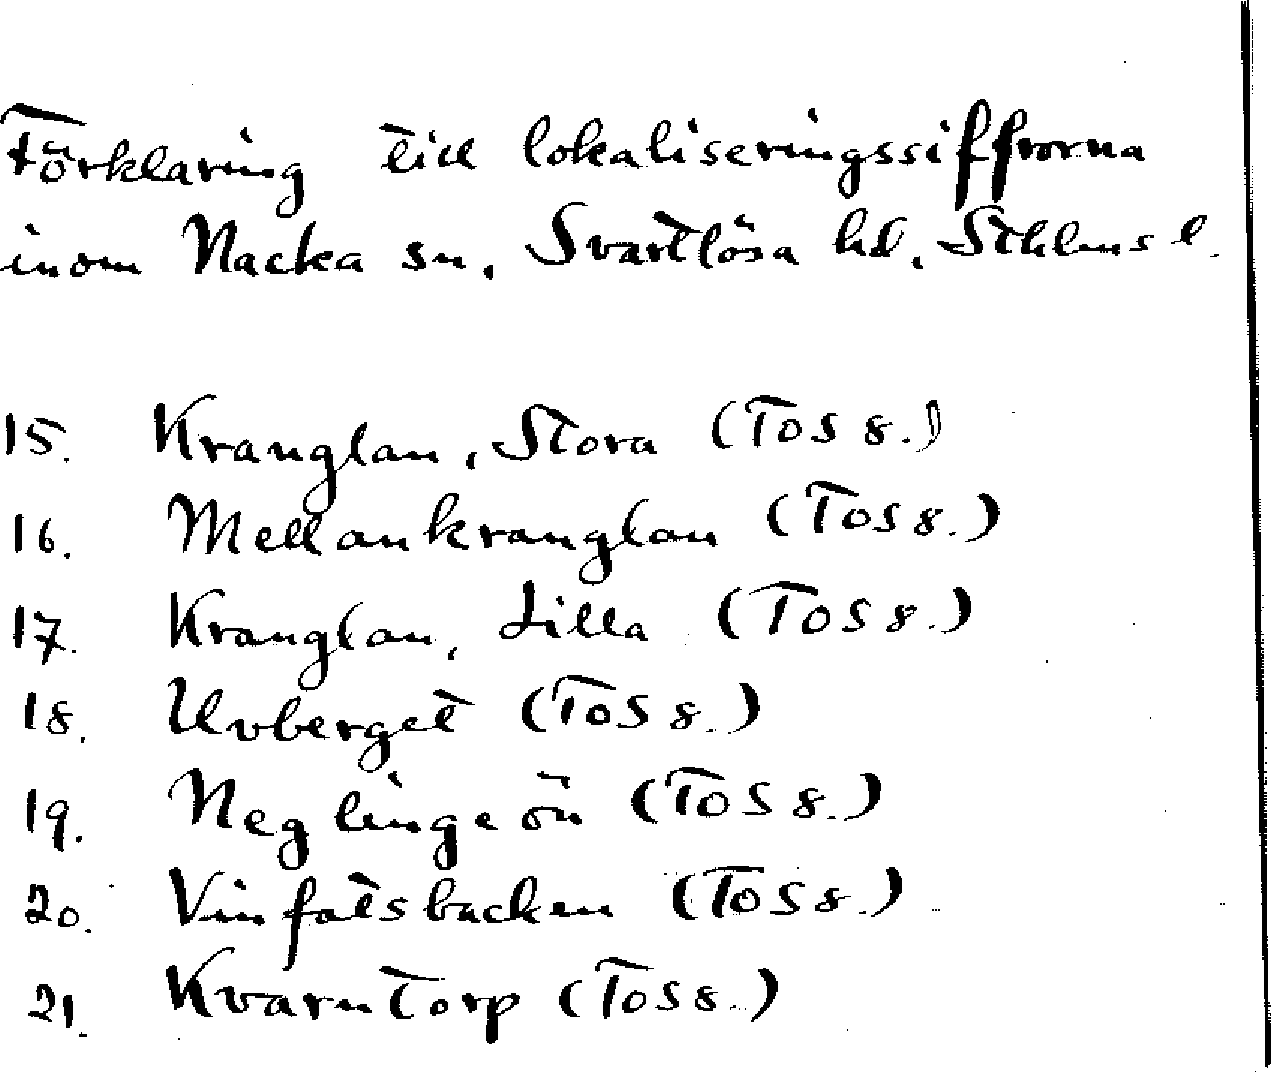 Förklaring till lokaliseringssiffrorna
inom Nacka sn, Svartlösa hd, Sthlms l.
15. Kranglan, Stora (TOS 8.)
16. Mellankranglan (TOS 8.)
17. Kranglan, Lilla (TOS 8.)
18. Uvberget (TOS 8.)
19. Neglingeön (TOS 8.)
20. Vinfatsbacken (TOS 8.)
21. Kvarntorp (TOS 8.)